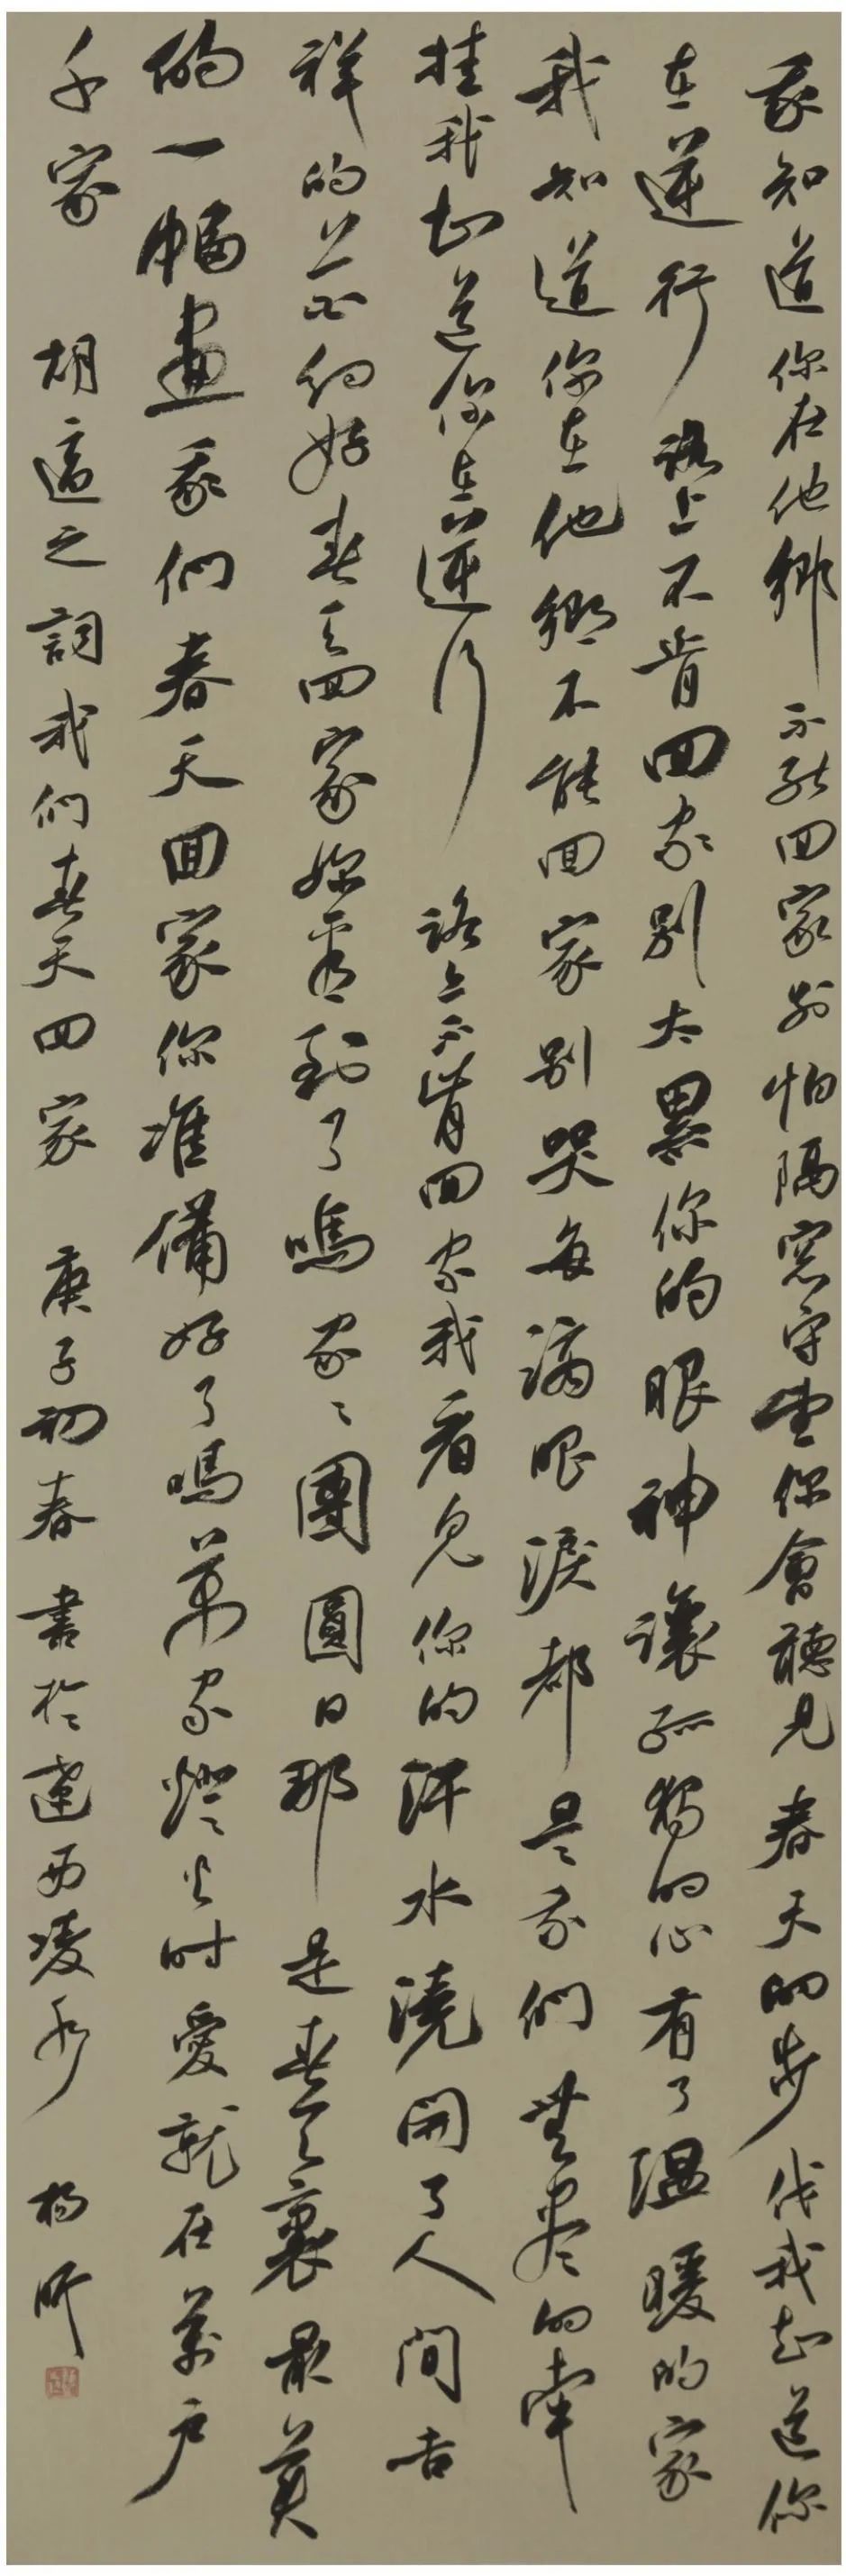 我知道你在他鄉不能回家別怕隔窗守望你會聽見春天的步伐我知道你
在逆行路上不肯回家別太累你的眼神讓孤獨的心有了溫暖的家
我知道你在他鄉不能回家別哭每滴眼淚都是我們無盡的牽
挂我知道你在逆行路上不肯回家我看見你的汗水澆開了人間吉
祥的花你好春天回家你看到了嗎家々團圓日那是春天裏最美
的一幅畫我們春天回家你準備好了嗎萬家燈火時愛就在萬戶
千家 胡適之詞我們春天回家 庚子初春書於建西凌 楊昕